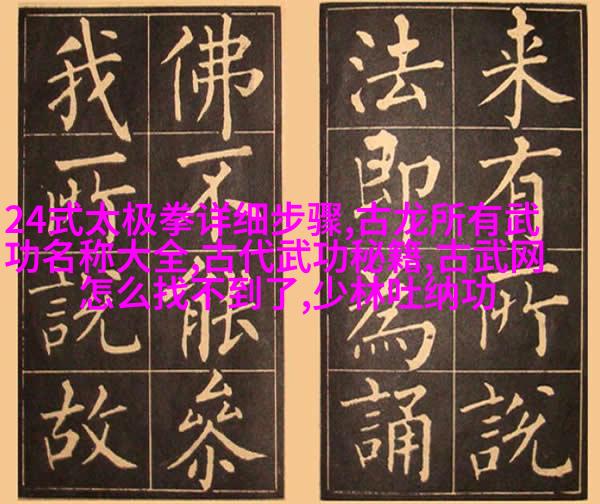 24式太极拳详细步骤,古龙所有武
功名称大全,古代武功秘籍,古武网
怎么找不到了,少林吐纳功
来有所說
法即為誦
佛不能參
我所說故